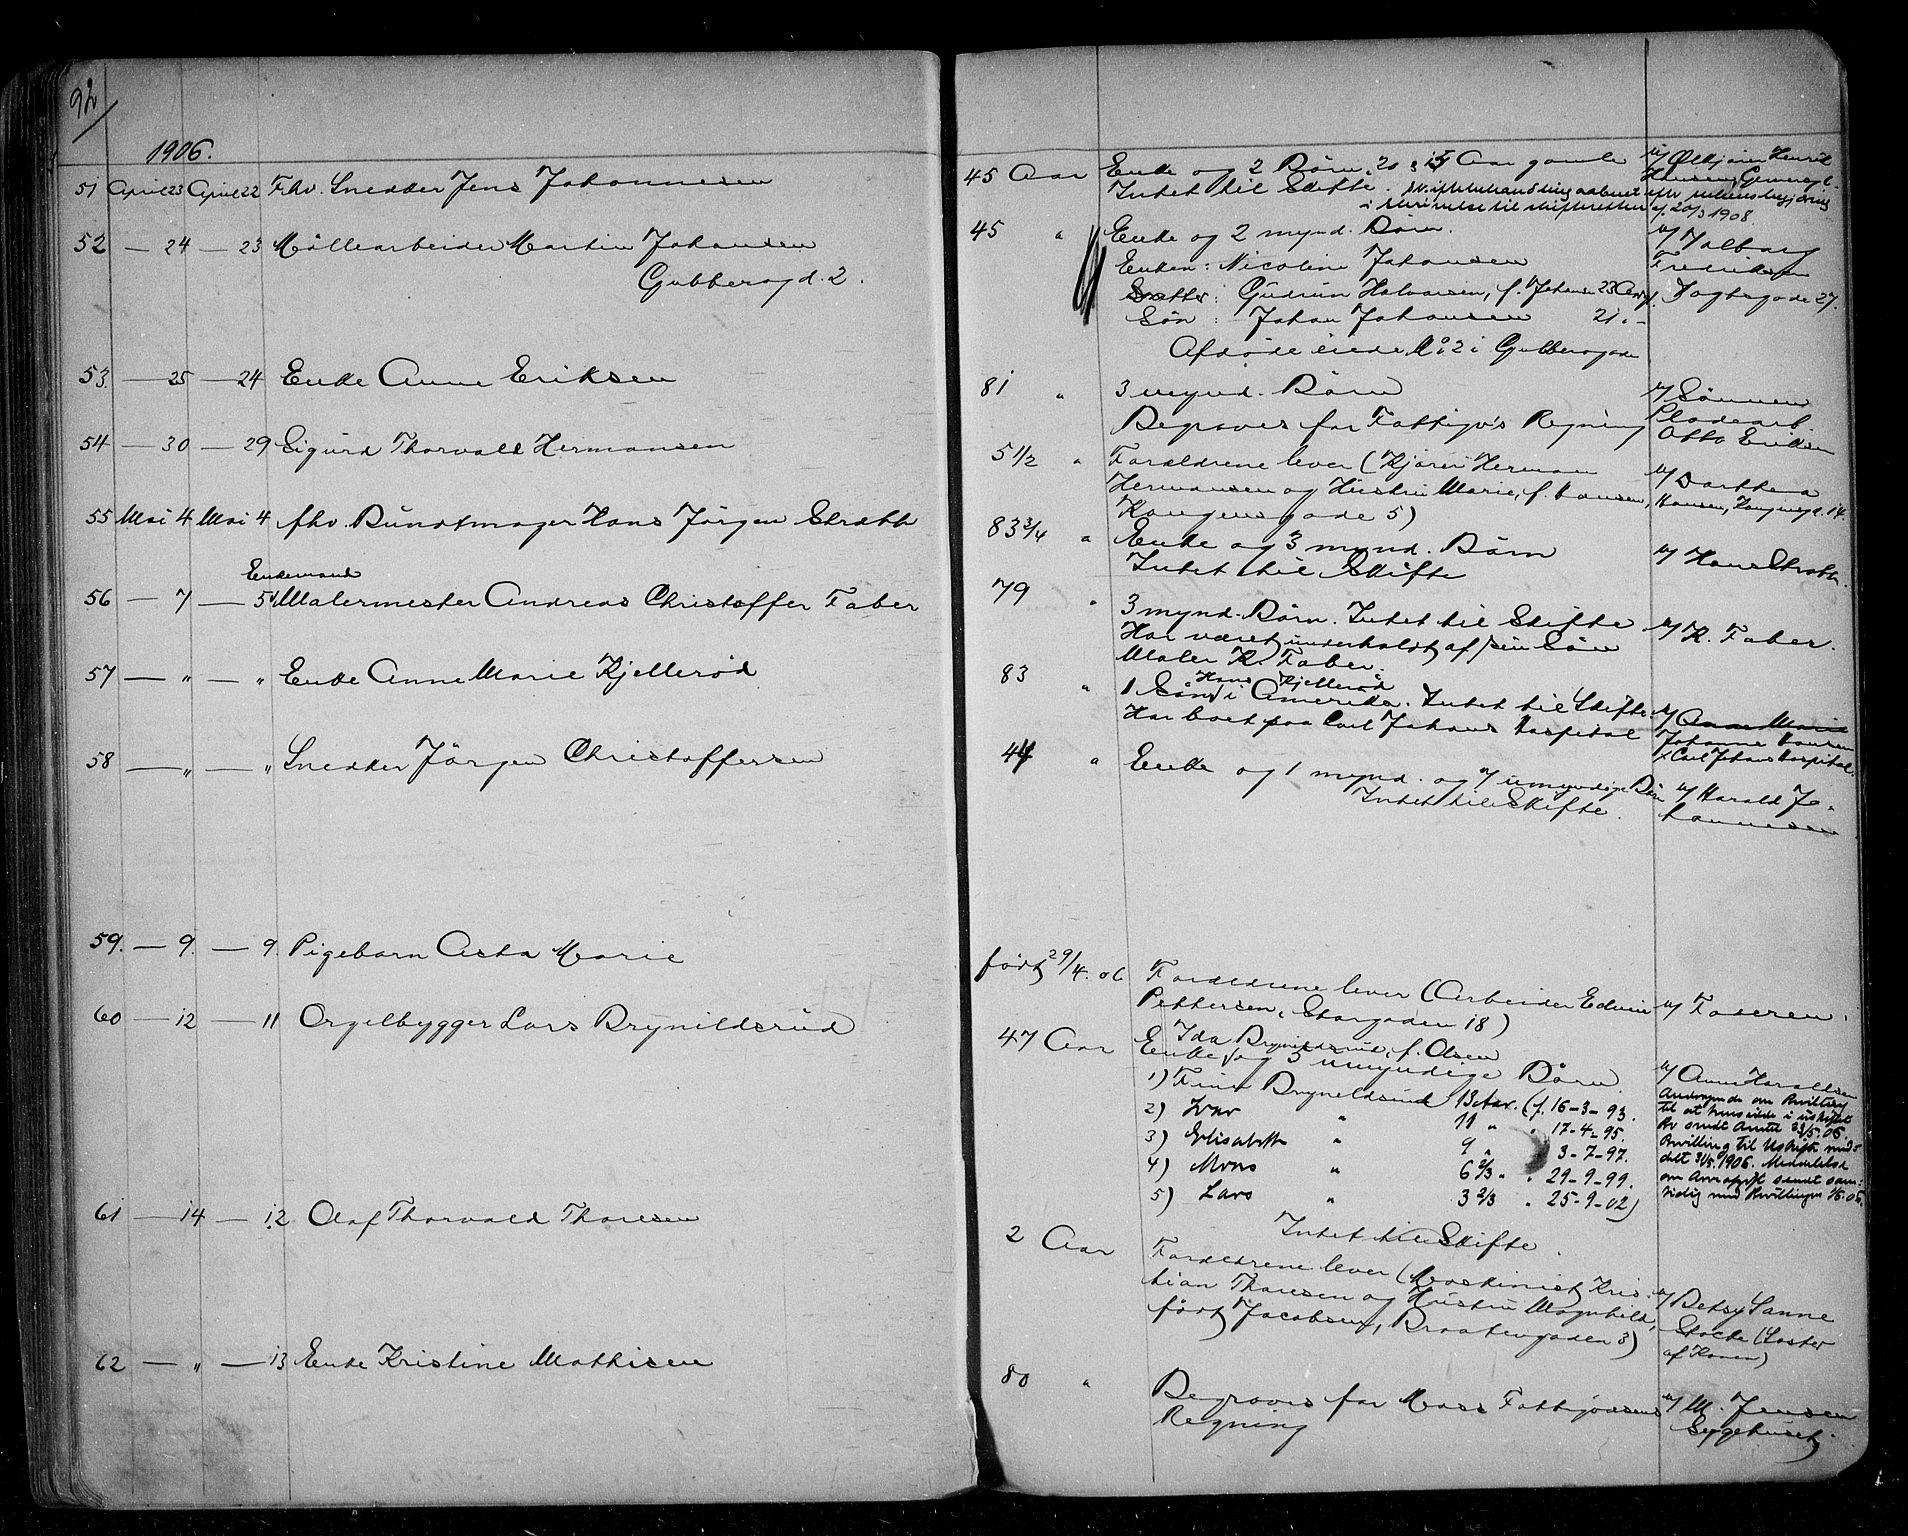 92
1906.
51 April 23 April 22 Fhv. Snedker Jens Johannesen
52 — 24 — 23 Møllearbeider Martin Johansen
Gubberogd. 2.
53. — 25 — 24 Enke Anne Eriksen
54 — 30 — 29 Sigurd Thorvald Hermansen
55 Mai 4 Mai 4 fhv. Buntmager Hans Jørgen
Enkemand
56 — 7 — 5 Malermester Andreas Christoffer Faber
57 — " — " Enke Anne Marie Kjellerød
58 — " — " Snedker Jørgen Christoffersen
59. — 9. — 9. Pigebarn Asta Marie
60 — 12 — 11 Orgelbygger Lars Brynildsrud
61 — 14 — 12 Olaf Thorvald Thoresen
62 — " — 13 Enke Kristine Mathisen
45 Aar Enke og 2 Børn, 20 & 15 Aar gamle
Intet til Skifte. Skiftebehandling aabnet
i skrivelse til skifteretten af 20/3 1908
45 " Enke og 2 mynd. Børn.
Enken: Nicoline Johansen
Datter: Gudrun Halvorsen, f. Johansen 23 Aar
Søn: Johan Johansen 21 " -
Afdøde eiede No 2 i Gubberogaden
v/ Valborg
Fredriksen
Vogtsgade 27.
81 " 3 mynd. Børn
Begraves for Fattigv's Regning
v/ Sønnen
Otto Eriksen
5 1/2 " Forældrene lever (Kjører Herman
Hermansen og Hustru Marie, f. Hansen,
Kongensgade 5)
v/ Dorthea
Hansen, Kongensgd. 14.
83 3/4 " Enke og 3 mynd. Børn
Intet til Skifte
v/ Hans
79 " 3 mynd. Børn. Intet til Skifte
Har været underholdt af sin Søn
Maler K. Faber.
v/ K. Faber.
83 " Hans Kjellerød
1 Søn i Amerika. Intet til Skifte
Har boet paa Carl Johans Hospital
v/ Anne Marie
Johanne Hansen
Carl Johans Hospital.
44 " Enke og 1 mynd. og 7 umyndige Børn
Intet til Skifte.
v/ Harald Jo-
hannesen
født 29/4. 06 Forældrene lever (Arbeider Edvin
Pettersen, Storgaden 18)
v/ Faderen.
47 Aar Ida Brynildsrud, f. Olsen
Enke og 5 umyndige Børn.
1) Finn Brynildsrud 13 Aar. (f. 16-3-93.
2) Ivar " 11 " " 17-4-95.
3) Elisabeth " 9 " 3-7-97.
4) Mons " 6 2/3 " " 29-9-99.
5) Lars " 3 2/3 " 25-9-02)
Intet til Skifte.
v/ Anna Haraldsen
Andragende om Bevilling
til at hensidde i uskiftet
Bo sendt Amtet 23/5. 06.
Bevilling til Uskifte med-
delt 31/5 1906. Meddelelse
2 Aar Forældrene lever (Maskinist Kris-
tian Thoresen og Hustru Magnhild,
født Jacobsen, Braatengaden 3)
v/ Betsy Sanne
(Søster
af Konen)
80 " Begraves for Moss Fattigvæsens
Regning
v/ M. Jensen
Sygehuset